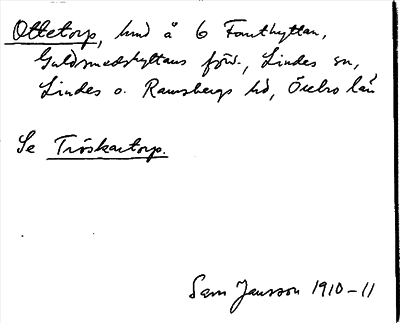 Ottetorp, lund å 6 Fanthyttan,
Guldsmedshyttans förs., Lindes sn,
Lindes o. Ramsbergs hd, Örebro län
Se Tröskartorp.
Sam Jansson 1910-11